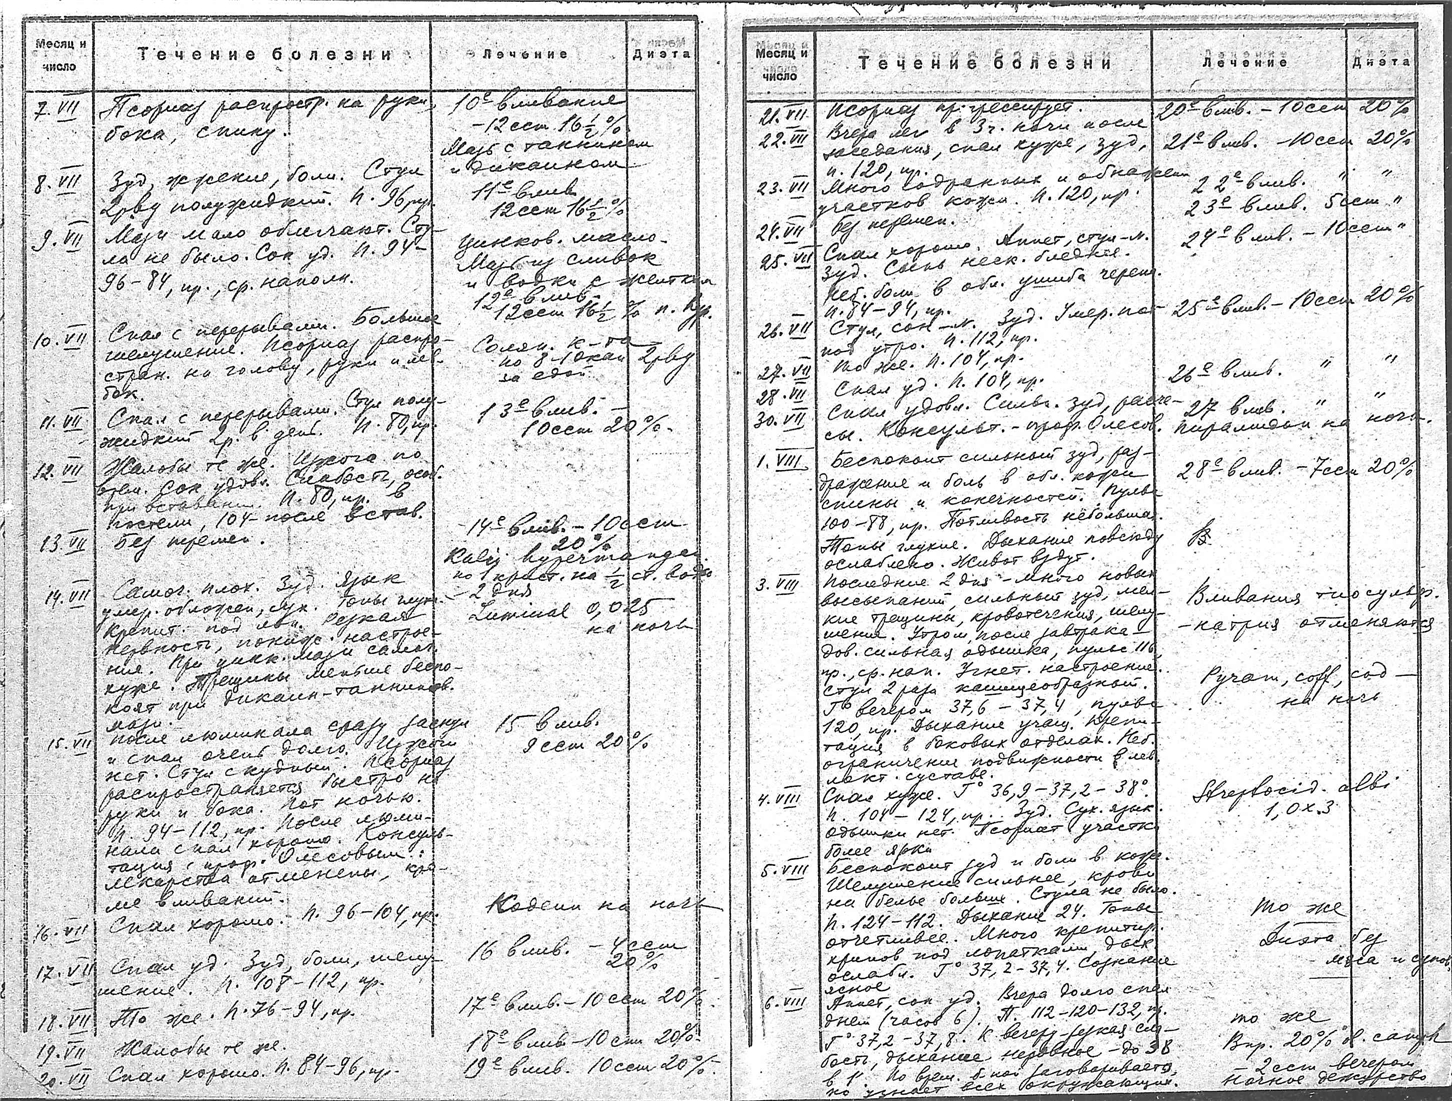 Месяц и число
Течение болезни
Лечение
Диэта
7.VII
Псориаз распростр. на руки,
бока, спину.
10е вливание
-12 ccm 16½%
Мазь с таннином
и дикаином
8.VII
Зуд, жжение, боли. Стул
2 рву полужидкий. П. 96, пр.
11е влив.
12 ccm 16½%
9.VII
Мази мало облегчают. Сту-
ла не было. Сон уд. П. 94-
96-84, пр., ср. наполн.
цинков. масло.
Мазь из сливок
и водки с желтком
12е влив.
12 ccm 16½%
10.VII
Спал с перерывами. Большое
шелушение. Псориаз распро-
стран. на голову, руки и лев.
бок.
Солян. к-та
по 8-10 кап 2 рву
за едой
11.VII
Спал с перерывами. Стул полу-
жидкий 2 р. в день. П. 80, пр.
13е влив. -
10 ccm 20%.
12.VII
Жалобы те же. Изжога по
врем. Сон удовл. Слабость, особ.
при вставании. П. 80, пр. в
постели, 104 - после встав.
13.VII
Без перемен.
-14е влив. - 10 ccm
20%
Kalij hypermangan.
по 1 крист. на ½ ст. воды
- 2 дня
14.VII
Самоч. плох. Зуд. Язык
умер. обложен, сух. Тоны глухи
крепит. под лев. Резкая
нервность, пониж. настрое-
ние. При цинк. мази самоч.
хуже. Трещины меньше беспо-
коят при дикаин-таннинов.
мази.
Luminal 0,025
на ночь
15.VII
После люминала сразу заснул
и спал очень долго. Изжоги
нет. Стул скудный. Псориаз
распространяется быстро на
руки и бока. Пот ночью.
П. 94-112, пр. После люми-
нала спал хорошо. Консуль-
тация с проф. Олесовым:
лекарства отменены, кро-
ме вливаний.
15 влив.
9 ccm 20%
16.VII
Спал хорошо. П. 96-104, пр.
Кодеин на ночь
17.VII
Спал уд. Зуд, боли, шелу-
шение. П. 108-112, пр.
16 влив. - 4 ccm
20%
18.VII
То же. П. 76-94, пр.
17е влив. - 10 ccm 20%.
19.VII
Жалобы те же.
18е влив - 10 ccm 20%.
20.VII
Спал хорошо. П. 84-96, пр.
19е влив. 10 ccm 20%.
Месяц и число
Течение болезни
Лечение
Диэта
21.VII
Псориаз прогрессирует.
20е влив. - 10 ccm 20%
22.VII
Вчера лег в 3 ч. ночи после
заседания, спал хуже, зуд,
п. 120, пр.
21е влив. - 10 ccm 20%
23.VII
Много содранных и обнажен
участков кожи. П. 120, пр.
22е влив. " "
24.VII
Без перемен.
23е влив. 5 ccm "
25.VII
Спал хорошо. Аппет, стул-N.
Зуд. Сыпь неск. бледнее.
Неб. боли в обл. ушиба череп.
П. 84-94, пр.
24е влив. - 10 ccm "
26.VII
Стул, сон - N. Зуд. Умер. пот
под утро. П. 112, пр.
25е влив - 10 ccm 20%
27.VII
То же. П. 104, пр.
28.VII
Спал уд. П. 104, пр.
26е влив. " "
30.VII
Спал удовл. Сильн. зуд, расче-
сы. Консульт. - проф. Олесов.
27 влив. " "
пирамидон на ночь.
1.VIII
Беспокоит сильный зуд, раз-
дражение и боль в обл. кожи
спины и конечностей. Пульс
100-88, пр. Потливость небольшая.
Тоны глухие. Дыхание повсюду
ослаблено. Живот вздут.
28е влив. - 7 ccm 20%
3.VIII
Последние 2 дня - много новых
высыпаний, сильный зуд, мел-
кие трещины, кровотечения, шелу-
шение. Утром, после завтрака -
дов. сильная одышка, пульс 116,
пр., ср. нап. Угнет. настроение.
Стул 2 раза кашицеобразный.
Т° вечером 37,6 - 37,4, пульс
120, пр. Дыхание учащ. Крепи-
тация в боковых отделах. Неб.
ограничение подвижности в лев.
локт. суставе.
Вливания тиосульф.
-натрия отменяются
на ночь
4.VIII
Спал хуже. Т° 36,9-37,2-38°.
П. 104-124, пр. Зуд. Сух. язык.
Одышки нет. Псориат участки
более ярки
Streptocid. albi
1,0 x 3
5.VIII
Беспокоит зуд и боли в коже.
Шелушение сильнее, крови
на белье больше. Стула не было.
П. 124-112. Дыхание 24. Тоны
отчетливее. Много крепитир.
хрипов под лопатками, дых.
ослабл. Т° 37,2-37,4. Сознание
ясное
То же
Диэта без
мяса и супов
6.VIII
Аппет, сон уд. Вчера долго спал
днем (часов 6). П. 112-120-132, пр.
Т° 37,2-37,8. К вечеру - резкая сла-
бость, дыхание неровное - до 38
в 1'. По врем. б-ной заговаривается,
но узнает всех окружающих.
то же
Впр. 20%
2 ccm вечером
Ночное дежурство